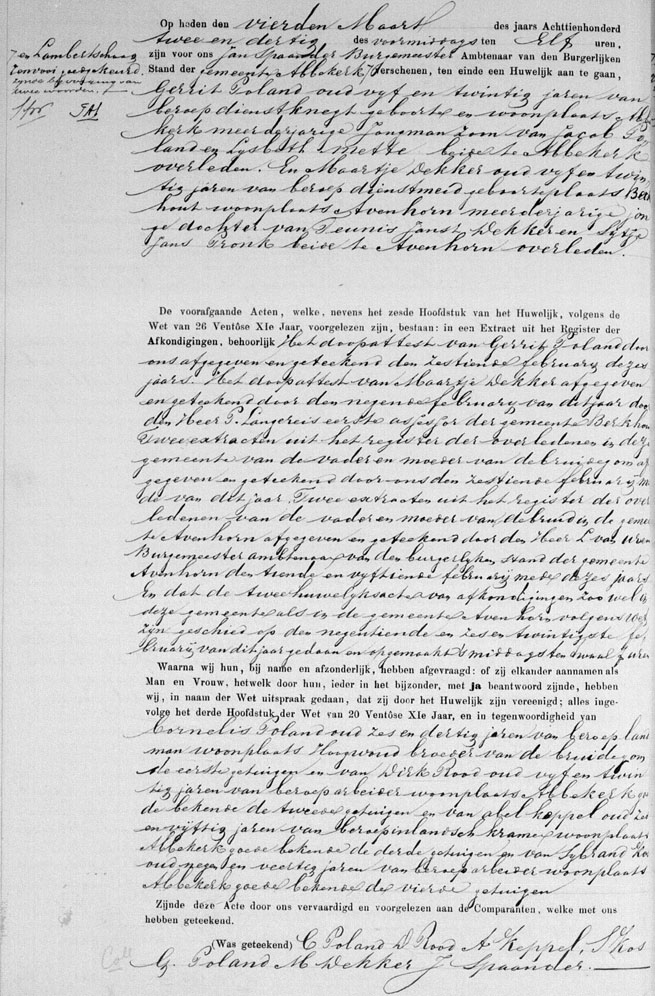 Op heden den vierden Maart des jaars Achttienhonderd
twee en dertig des voormiddags ten Elf uren,
zijn voor ons Jan Spaander Burgemeester Ambtenaar van den Burgerlijken
Stand der gemeente Abbekerk Verschenen, ten einde een Huwelijk aan te gaan,
en Lambertschaag
Gerrit Poland oud vyf en twintig jaren van
beroep dienstknegt geboorte en woonplaats Abbe
kerk meerderjarige jongman zoon van Jacob Po
land en Lysbeth mette beide te Abbekerk
overleden. En Maartje Dekker oud vyf en twin
tig jaren van beroep dienstmeid geboorteplaats Berk
hout woonplaats Avenhorn meerderjarige jon
ge dochter van Teunis Janst Dekker en Sytje
Jans Pronk beide te Avenhorn overleden.
De voorafgaande Acten, welke, nevens het zesde Hoofdstuk van het Huwelijk, volgens de
Wet van 26 Ventôse XIe Jaar, voorgelezen zijn, bestaan: in een Extract uit het Register der
Afkondigingen, behoorlijk Het doopattest van Gerrit Poland door
ons afgegeven en geteekend den zestiende februarij dezes
jaars. Het doopattest van Maartje Dekker afgegeven
en geteekend door den negende februarij van dit jaar door
den Heer P. Langereis eerste assessor der gemeente Berkhout
Twee extracten uit het register der overledenen in deze
gemeente van de vader en moeder van de bruidegom af
gegeven en geteekend door ons den zestiende februarij me
de van dit jaar. Twee extracten uit het register der over
ledenen van de vader en moeder van de bruid in de gemeen
te Avenhorn afgegeven en geteekend door den Heer L van
Burgemeester ambtenaar van den burgerlyken stand der gemeente
Avenhorn den tiende en vyftiende februarij mede dezes jaars
En dat de twee huwelyksacte van afkondigingen zoo wel in
deze gemeente als in de gemeente Avenhorn volgens wet
zyn geschied op den negentiende en zes en twintigste fe
bruarij van dit jaar gedaan en opgemaakt 's middags ten twaalf uren
Waarna wij hun, bij name en afzonderlijk, hebben afgevraagd: of zij elkander aannamen als
Man en Vrouw, hetwelk door hun, ieder in het bijzonder, met ja beantwoord zijnde, hebben
wij, in naam der Wet uitspraak gedaan, dat zij door het Huwelijk zijn vereenigd; alles inge-
volge het derde Hoofdstuk der Wet van 20 Ventôse XIe Jaar, en in tegenwoordigheid van
Cornelis Poland oud zes en dertig jaren van beroep land
man woonplaats Hoogwoud broeder van de bruidegom
de eerste getuigen en van Dirk Rood oud vyf en twin
tig jaren van beroep arbeider woonplaats Abbekerk goe
de bekende de tweede getuigen en van abel keppel oud
en vyftig jaren van beroep inlandsch kramer woonplaats
Abbekerk goede bekende de derde getuigen en van Sybrand Kos
oud negen en veertig jaren van beroep arbeider woonplaats
Abbekerk goede bekende de vierde getuigen
Zijnde deze Acte door ons vervaardigd en voorgelezen aan de Comparanten, welke met ons
hebben geteekend.
(Was geteekend) C Poland D Rood A Keppel, S Kos
G. Poland M Dekker J Spaander.